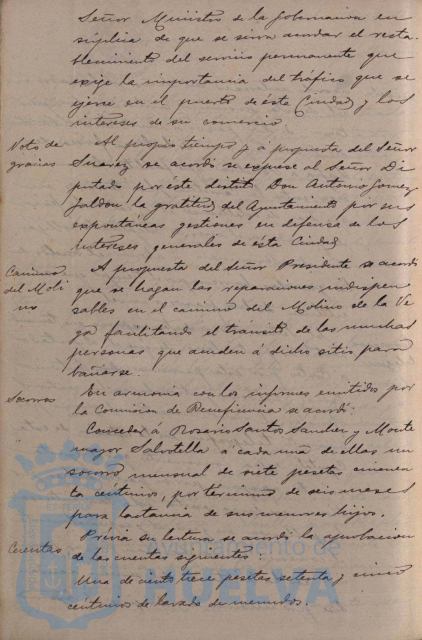 Señor Ministro de la Gobernacion en
súplica de que se sirva acordar el resta-
blecimiento del servicio permanente que
exige la importancia del tráfico que se
ejerce en el puerto de ésta Ciudad y los
intereses de su comercio.
Voto de
gracias
Al propio tiempo y a propuesta del Señor
Suarez se acordó se exprese al Señor Di
putado por éste distrito Don Antonio Gomez
Jaldon la gratitud del Ayuntamiento por sus
expontáneas gestiones en defensa de los
intereses generales de ésta Ciudad
Camino
del Moli
no
A propuesta del Señor Presidente se acordó
que se hagan las reparaciones indispen
sables en el camino del Molino de la Ve
ga facilitando el transito de las muchas
personas que acuden á dicho sitio para
bañarse.
Socorros
En armonia con los informes emitidos por
la Comision de Beneficencia se acordó:
Conceder á Rosario Santos Sanchez y Monte
mayor Salvatella á cada una de ellas un
socorro mensual de siete pesetas cincuen
ta céntimos, por término de seis meses
para lactancia de sus menores hijos.
Cuentas
Prévia su lectura se acordó la aprobacion
de las cuentas siguientes:
Una de ciento trece pesetas setenta y cinco
céntimos de lavado de menudos.
Ayuntamiento de
HUELVA